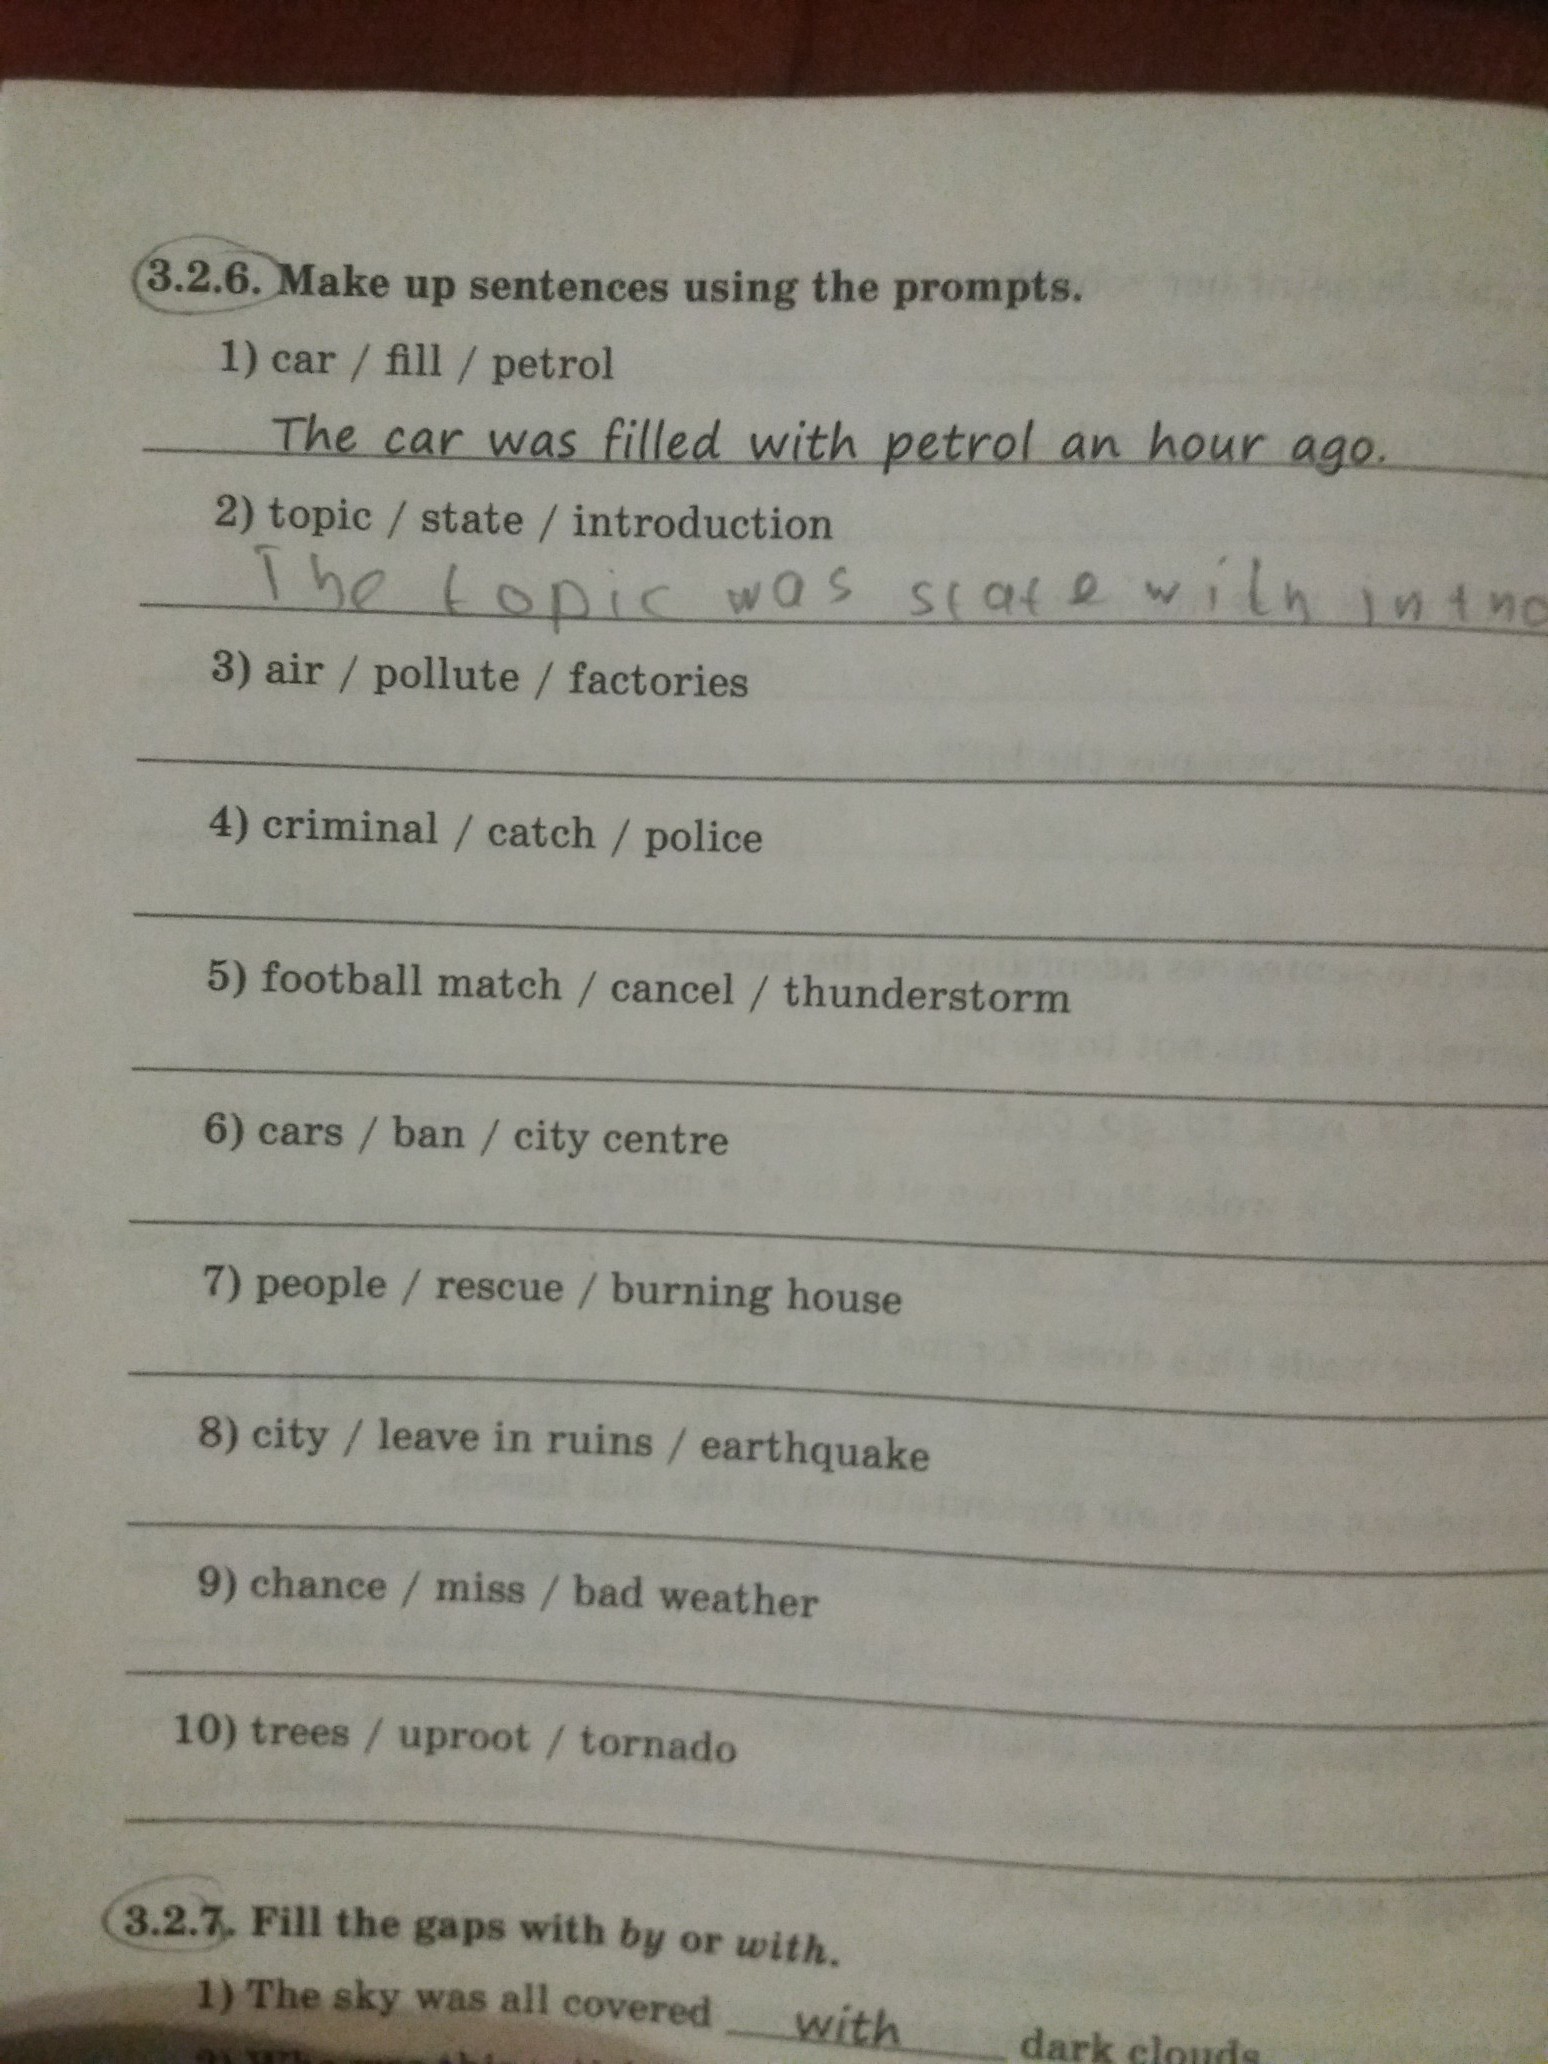 3.2.6. Make up sentences using the prompts.
1) car / fill / petrol
The car was filled with petrol an hour ago.
2) topic / state / introduction
The topic was state with intro
3) air / pollute / factories
4) criminal / catch / police
5) football match / cancel / thunderstorm
6) cars / ban / city centre
7) people / rescue / burning house
8) city / leave in ruins / earthquake
9) chance / miss / bad weather
10) trees / uproot / tornado
3.2.7. Fill the gaps with by or with.
1) The sky was all covered with dark clouds